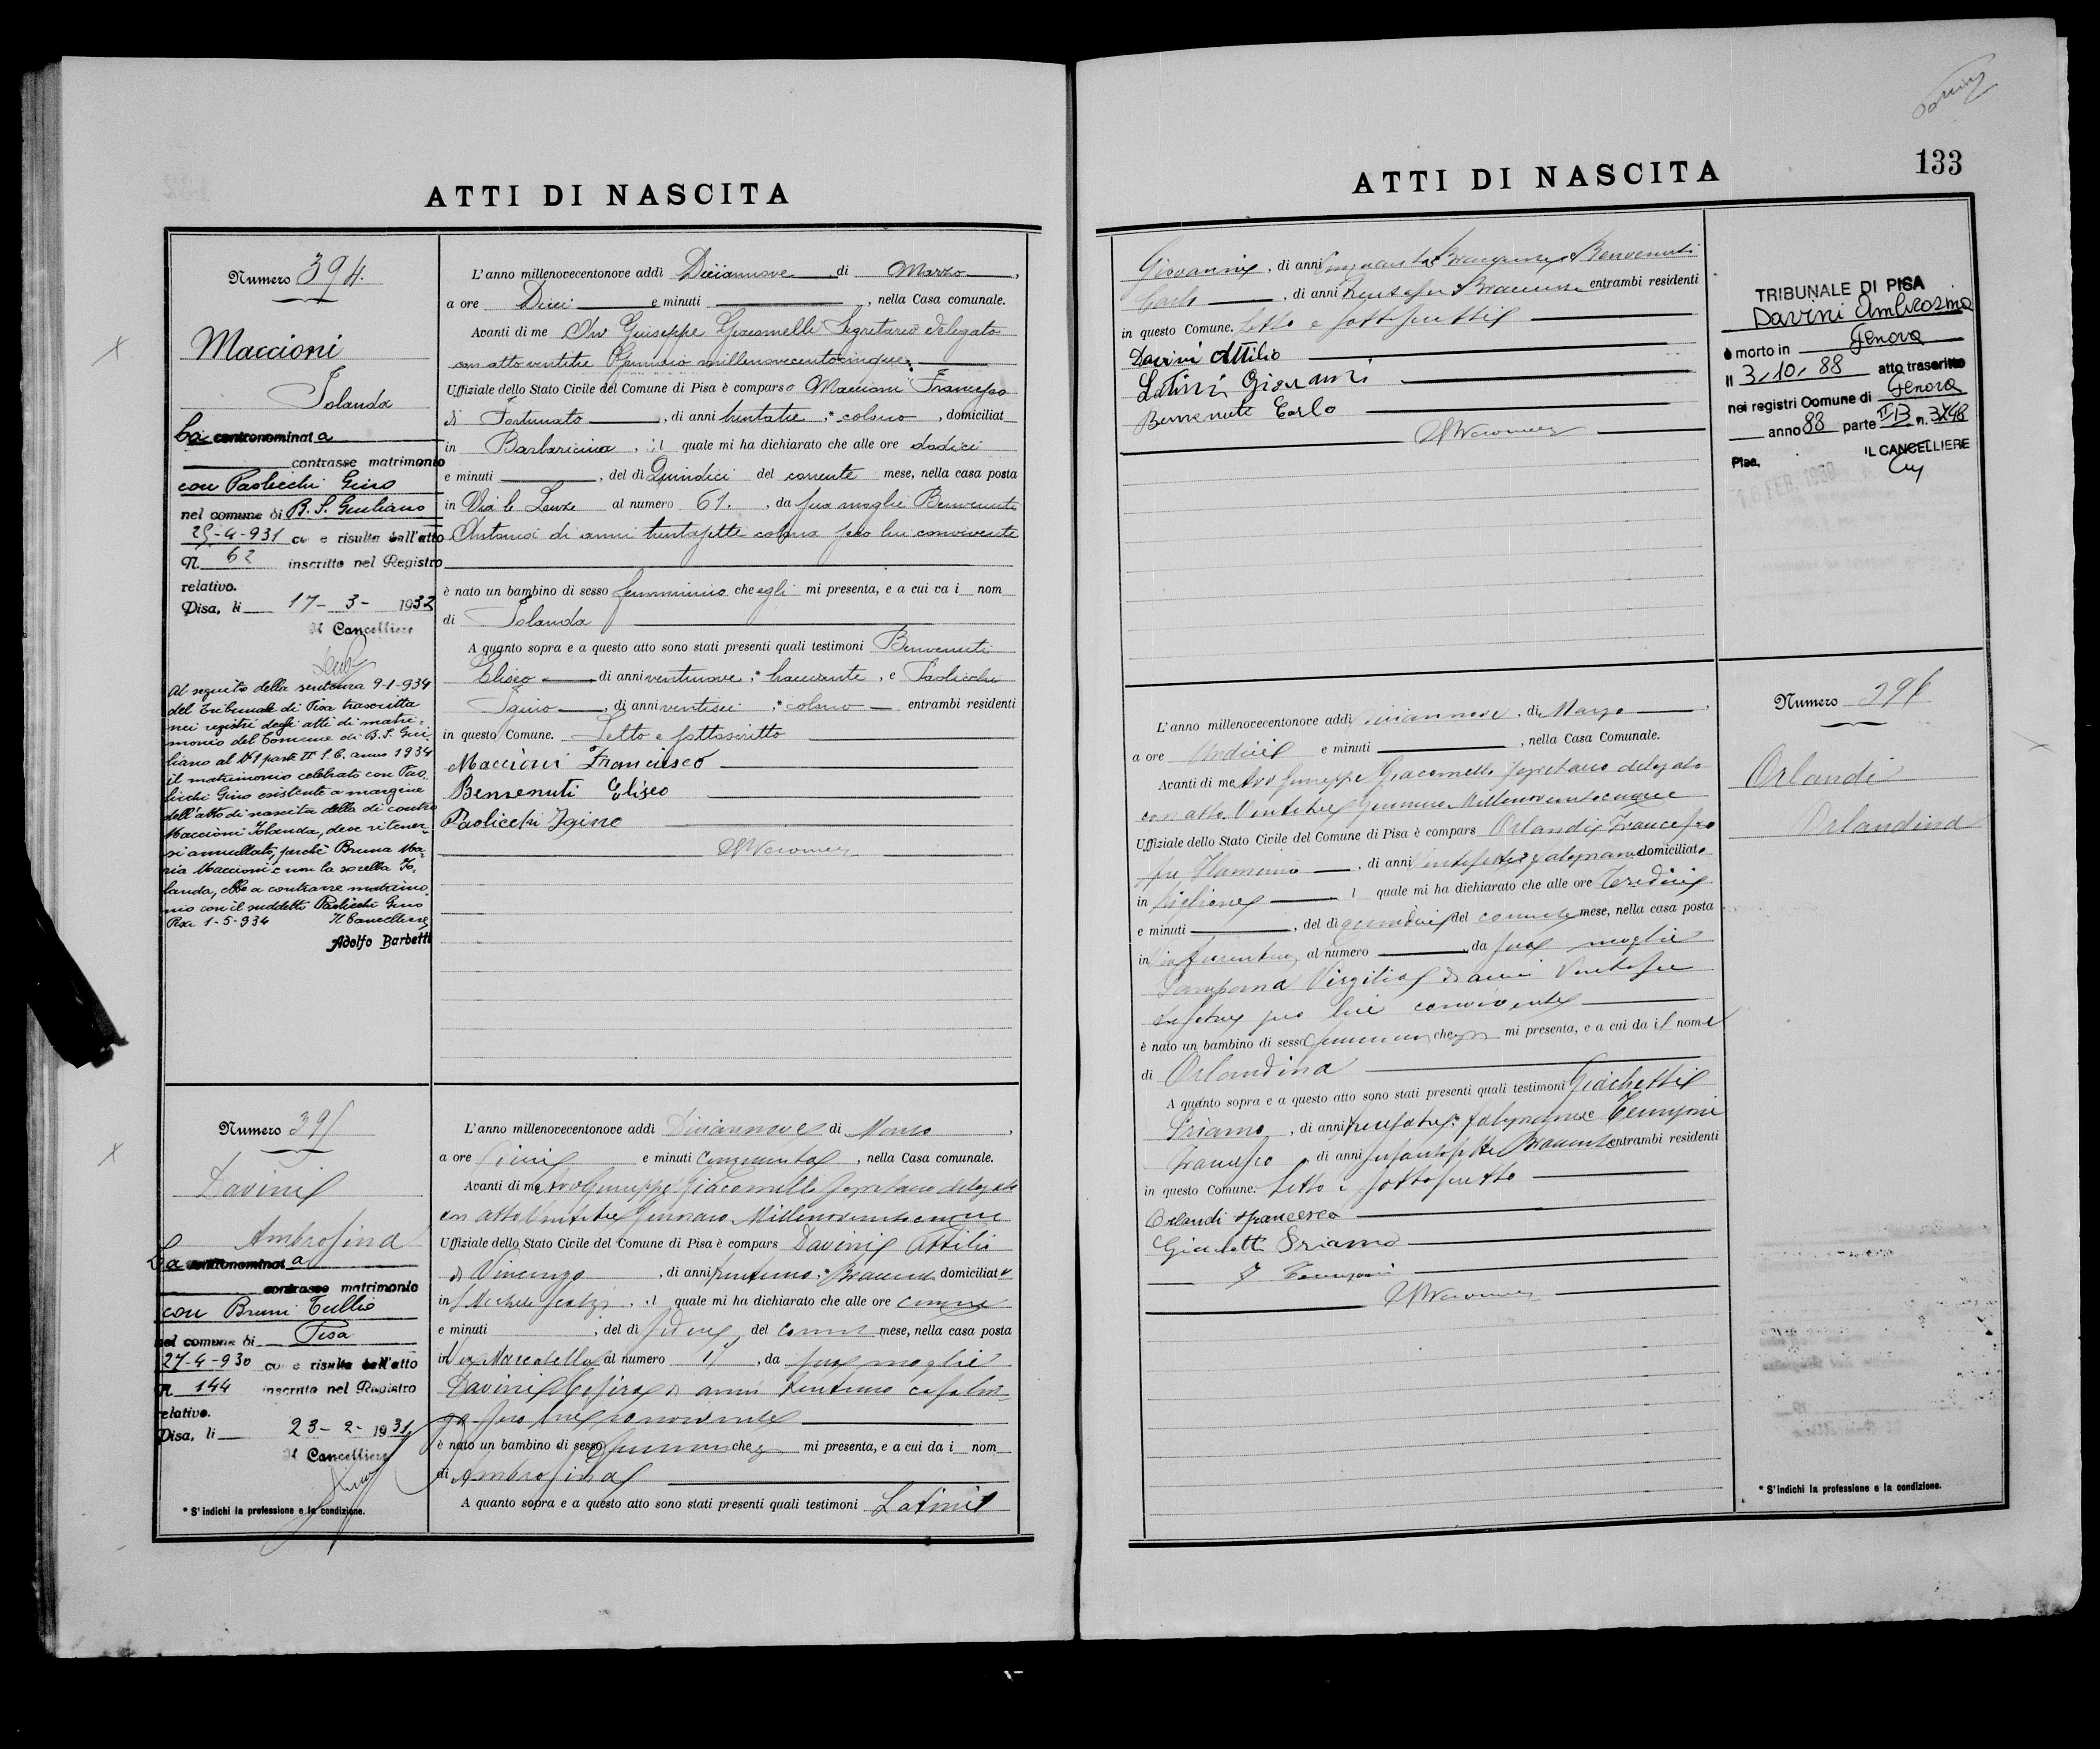 ATTI DI NASCITA
Numero 394.
Maccioni
Iolanda
La contronominata
contrasse matrimonio
con Paolicchi Gino
nel comune di B. S. Giuliano
25-4-931 co e risulta dall'atto
N. 62 inscritto nel Registro
relativo.
Pisa, li 17-3-1932
Il Cancelliere
Al seguito della sentenza 9-1-934
del Tribunale di Pisa trascritta
nei registri degli atti di matri-
monio del Comune di B. S. Giu-
liano al N 1 parte II S. C. anno 1934
il matrimonio celebrato con Pao-
licchi Gino esistente a margine
dell'atto di nascita della di contro
Maccioni Iolanda, deve ritener-
si annullato, perchè Bruna Ma-
ria Maccioni e non la sorella Io-
landa, ebbe a contrarre matrimo-
nio con il suddetto Paolicchi Gino
Pisa 1-5-934 Il Cancelliere
Adolfo Barbetti
L'anno millenovecentonove addì Diciannove di Marzo,
a ore Dieci e minuti , nella Casa comunale.
Avanti di me Avv Giuseppe Giacomelli Segretario delegato
con atto ventitre Gennaio millenovecentocinque
Uffiziale dello Stato Civile del Comune di Pisa è comparso Maccioni Francesco
di Fortunato , di anni trentatre ,* colono , domiciliat
in Barbaricina , il quale mi ha dichiarato che alle ore dodici
e minuti , del dì Quindici del corrente mese, nella casa posta
in Via le Lenze al numero 61. , da sua moglie Benvenuti
Antonia di anni trentasette colona seco lui convivente
è nato un bambino di sesso femminino che egli mi presenta, e a cui va i nom
di Iolanda
A quanto sopra e a questo atto sono stati presenti quali testimoni Benvenuti
Eliseo di anni ventinove ,* bracciante , e Paolicchi
Igino , di anni ventisei ,* colono entrambi residenti
in questo Comune. Letto e sottoscritto
Maccioni Francesco
Benvenuti Eliseo
Paolicchi Igino
Numero 395
Davini
Ambrosina
La contronominata
contrasse matrimonio
con Bruni Tullio
nel comune di Pisa
27-4-930 co e risulta dall'atto
N. 144 inscritto nel Registro
relativo.
Pisa, li 23-2-1931
Il Cancelliere
* S'indichi la professione e la condizione.
L'anno millenovecentonove addì Diciannove di Marzo,
a ore Dieci e minuti Cinquanta , nella Casa comunale.
Avanti di me Avv Giuseppe Giacomelli Segretario delegato
con atto Ventitre Gennaio Millenovecentocinque
Uffiziale dello Stato Civile del Comune di Pisa è compars Davini Attilio
di Vincenzo , di anni trentuno ,* Bracciante domiciliato
in S Michele Scalzi , il quale mi ha dichiarato che alle ore cinque
e minuti , del dì sedici del corrente mese, nella casa posta
in Via Maccatella al numero 15 , da sua moglie
Davini Cesira di anni trentuno casalin-
ga seco lui convivente
è nato un bambino di sesso femminino che mi presenta, e a cui da i nom
di Ambrosina
A quanto sopra e a questo atto sono stati presenti quali testimoni Latini
133
ATTI DI NASCITA
Giovanni , di anni Cinquanta Bracciante e Benvenuti
Carlo , di anni trentasei Bracciante entrambi residenti
in questo Comune. Letto e sottoscritto
Davini Attilio
Latini Giovanni
Benvenuti Carlo
TRIBUNALE DI PISA
Davini Ambrosina
è morto in Genova
il 3/10/88 atto trascritto
nei registri Comune di Genova
anno 88 parte II B n. 3748
IL CANCELLIERE
Pisa, 16 FEB. 1989
L'anno millenovecentonove addì diciannove , di Marzo,
a ore Undici e minuti , nella Casa Comunale.
Avanti di me Avv Giuseppe Giacomelli Segretario delegato
con atto Ventitre Gennaio Millenovecentocinque
Uffiziale dello Stato Civile del Comune di Pisa è compars Orlandi Francesco
fu Flaminio , di anni ventisette falegname domiciliato
in Riglione l quale mi ha dichiarato che alle ore Tredici
e minuti , del dì quindici del corrente mese, nella casa posta
in Via Fiorentina al numero , da sua moglie
Virgilia di anni Ventisei
seco lui convivente
è nato un bambino di sesso femminino che mi presenta, e a cui da il nome
di Orlandina
A quanto sopra e a questo atto sono stati presenti quali testimoni Giachetti
Priamo , di anni trentatre * falegname e
Francesco , di anni Bracciante entrambi residenti
in questo Comune. Letto e sottoscritto
Orlandi Francesco
Giachetti Priamo
Numero 396
Orlandi
Orlandina
* S'indichi la professione e la condizione.